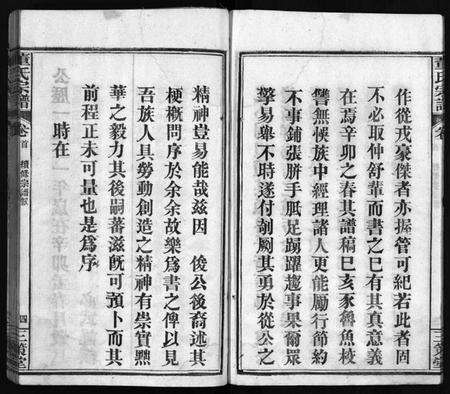 董氏宗譜
卷
作從戎豪傑者亦握管可紀若此者固
不必取仲舒輩而書之已有其真意義
在焉辛卯之春其譜稿已亥豕魯魚校
讐無悞族中經理諸人更能勵行節約
不事鋪張胼手胝足踴躍趨事果爾眾
擎易舉不時遂付剞劂其勇於從公之
精神豈易能哉茲因 俊公後裔述其
梗概問序於余余故樂爲書之俾以見
吾族人具勞動創造之精神有崇實黜
華之毅力其後嗣蕃滋旣可預卜而其
前程正未可量也是爲序
時在
公歷一 一年歲在辛卯
董氏宗譜
卷首
續修宗譜序
四
三策堂
三策堂